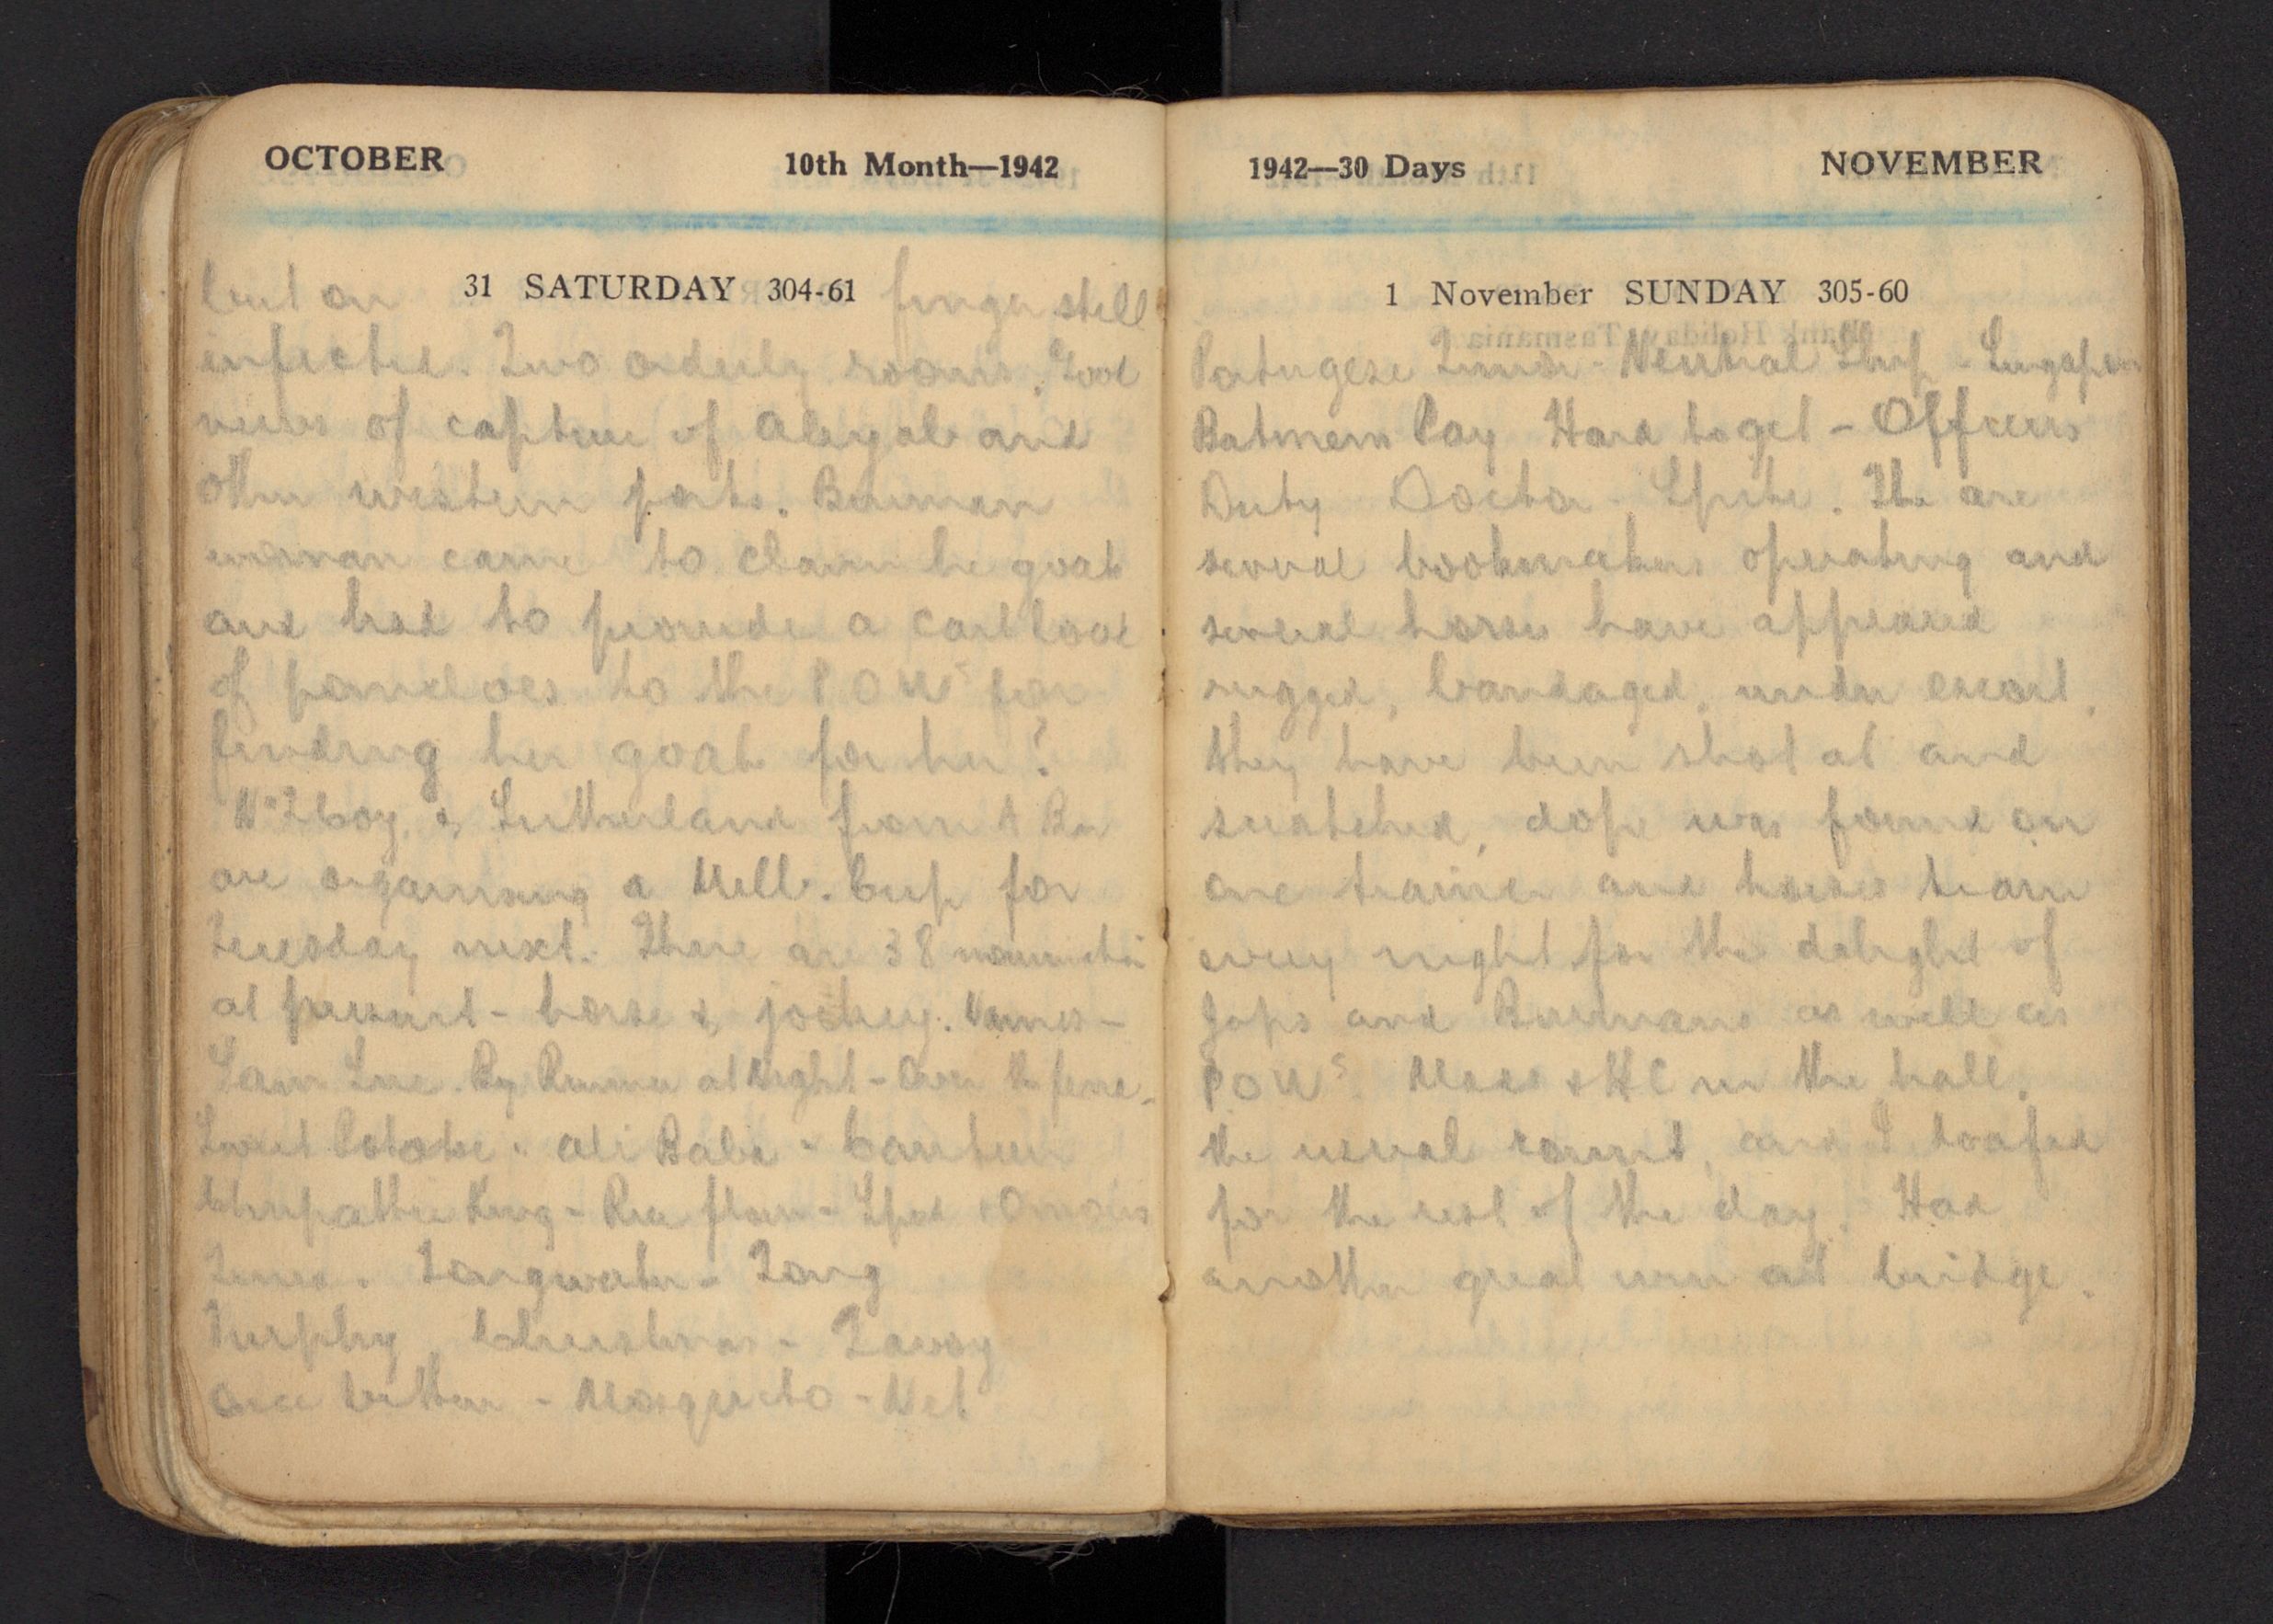 OCTOBER 10th Month—1942
31 SATURDAY 304-61
but on finger still
infected. Two orderly rooms. Good
news of capture of and
other western ports. Burman
woman came to claim he goat
and had to provide a cart load
of to the P O W's for
finding her goat for her!
& Sutherland from A Bn
are organising a Melb. Cup for
Tuesday next. There are 38
at present - horse & jockey. Names -
By Rumour at Night - Over the fence -
Sweet Potatoe - Ali Baba - Canteen
King -
Tongwater - Tong
Furphy Christmas - Tavoy
and better - Mosquito - Net
1942—30 Days NOVEMBER
1 November SUNDAY 305-60
Portugese Timor - Neutral Ship - Singapore
Batmens Pay Hard to get - Officers
Duty Doctor - Spite. The are
several bookmakers operating and
several horses have appeared
rugged, bandaged, under escort.
they have been shot at and
scratched, dope was found on
one trainer and horses train
every night for the delight of
Japs and Burmans as well as
P O W's. Mass & H C in the hall.
the usual round, and I loafed
for the rest of the day. Had
another great win at bridge.